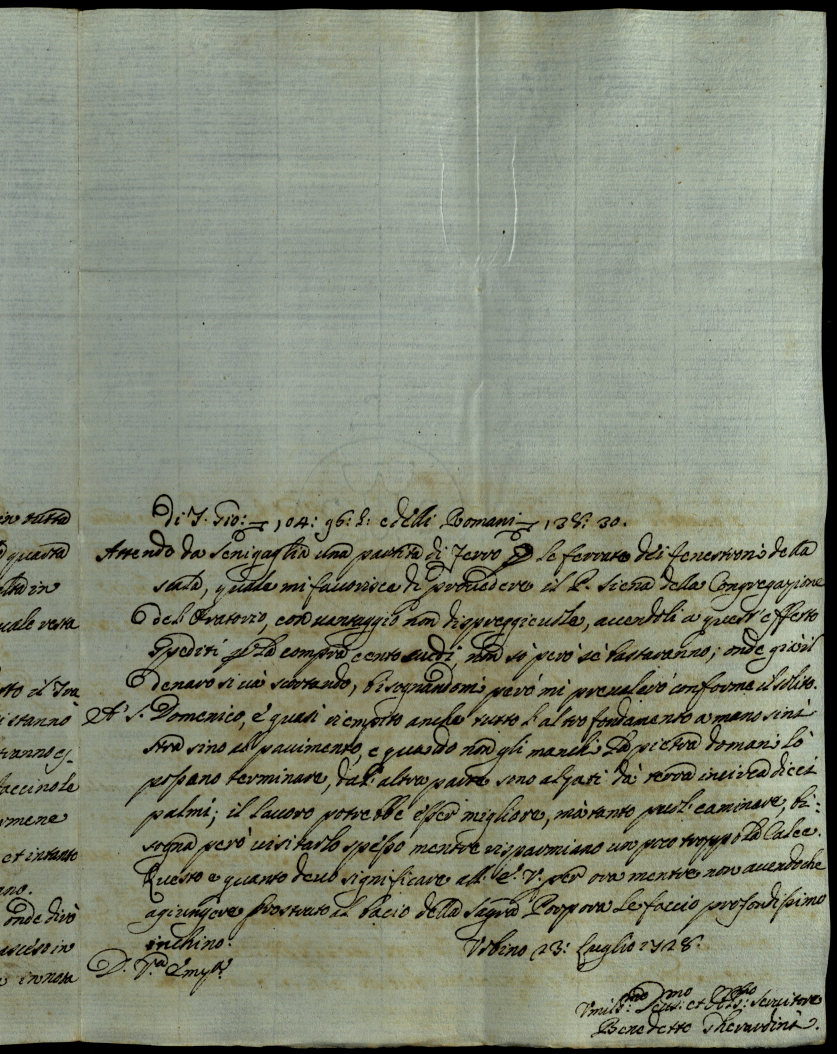 in tutta
quarta
in
uale resta
di S. Gio: 104: 96: 2: e delli Romani 138: 30.
Attendo da Senigaglia una partita di ferro p le ferrate dei fenestroni della
scala, quale mi favorisce di provedere il P. Siena della Congregazione
dell Oratorio, con vantaggio non dispreggievole, avendoli a quest'effetto
spediti p la compra cento scudi, non sò però sè bastaranno; onde già il
denaro si và scortando, bisognandomi però mi prevalerò conforme il solito.
A S. Domenico, è quasi riempito anche tutto l'altro fondamento a mano sini
stra sino al pavimento, e quando non gli manchi la pietra domani lo
possano terminare, dall'altra parte sono alzati dà terra incirca dieci
palmi; il lavoro potrebbe esser migliore, mà tanto può caminare, bi:
sogna però visitarlo spesso mentre risparmiano un poco troppo la calce.
Questo e quanto devo significare all' E. V. per ora mentre non avendo che
agiungere prostrato al bacio della Sagra Porpora le faccio profondissimo
inchino. Urbino 23: Luglio 1728.
D. V.ra Em.za
Umil.mo Dev.mo et Obb.mo Servitore
Benedetto Gherardini.